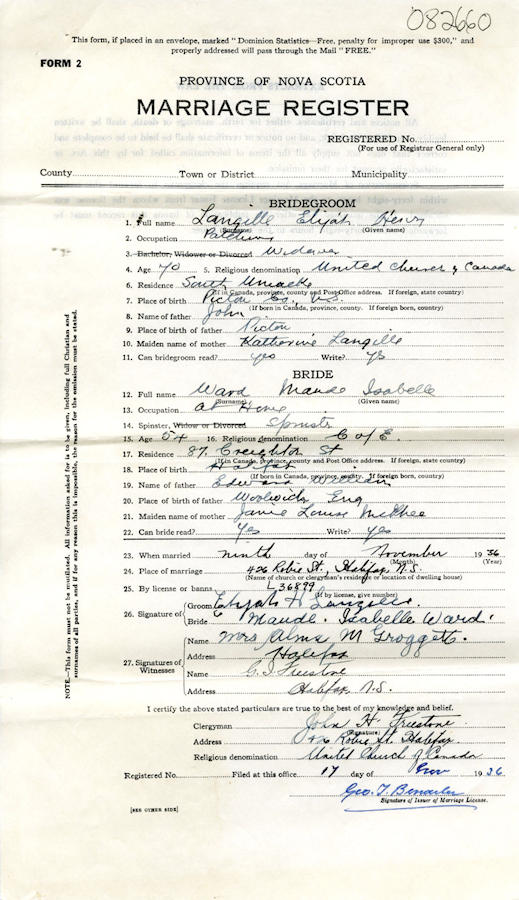 082660
This form, if placed in an envelope, marked "Dominion Statistics—Free, penalty for improper use $300," and
properly addressed will pass through the Mail "FREE."
FORM 2
PROVINCE OF NOVA SCOTIA
MARRIAGE REGISTER
REGISTERED No.
(For use of Registrar General only)
County Town or District Municipality
BRIDEGROOM
1. Full name Langille Elijah Henry
(Surname) (Given name)
2. Occupation
3. Bachelor, Widower or Divorced Widower
4. Age 70 5. Religious denomination United Church of Canada
6. Residence South Uniacke
(If in Canada, province, county and Post Office address. If foreign, state country)
7. Place of birth Pictou Co., N.S.
(If born in Canada, province, county. If foreign born, country)
8. Name of father John
9. Place of birth of father Pictou
10. Maiden name of mother Katherine Langille
11. Can bridegroom read? yes Write? yes
BRIDE
12. Full name Ward Maude Isabelle
(Surname) (Given name)
13. Occupation at Home
14. Spinster, Widow or Divorced Spinster
15. Age 54 16. Religious denomination C of E.
17. Residence 87 Creighton St
(If in Canada, province, county and Post Office address. If foreign, state country)
18. Place of birth Halifax
(If born in Canada, province, county. If foreign born, country)
19. Name of father Edward William
20. Place of birth of father Woolwich, Eng
21. Maiden name of mother Janie Louise McKhee
22. Can bride read? Yes Write? yes
23. When married ninth day of November 1936
(Month) (Year)
24. Place of marriage 426 Robie St., Halifax, N.S.
(Name of church or clergyman's residence or location of dwelling house)
25. By license or banns L 36899
(If by license, give number)
26. Signature of Groom Elijah H Langille
Bride Maude Isabelle Ward.
27. Signatures of Witnesses Name Mrs Alma M Groggett.
Address Halifax
Name G. S. Freestone
Address Halifax, N.S.
I certify the above stated particulars are true to the best of my knowledge and belief.
Clergyman John H. Freestone
(Signature)
Address 426 Robie St. Halifax.
Religious denomination United Church of Canada
Registered No. Filed at this office 17 day of Nov 1936
Geo. T.
Signature of Issuer of Marriage License.
[SEE OTHER SIDE]
NOTE.—This form must not be mutilated. All information asked for is to be given, including full Christian and
surnames of all parties, and if for any reason this is impossible, the reason for the omission must be stated.